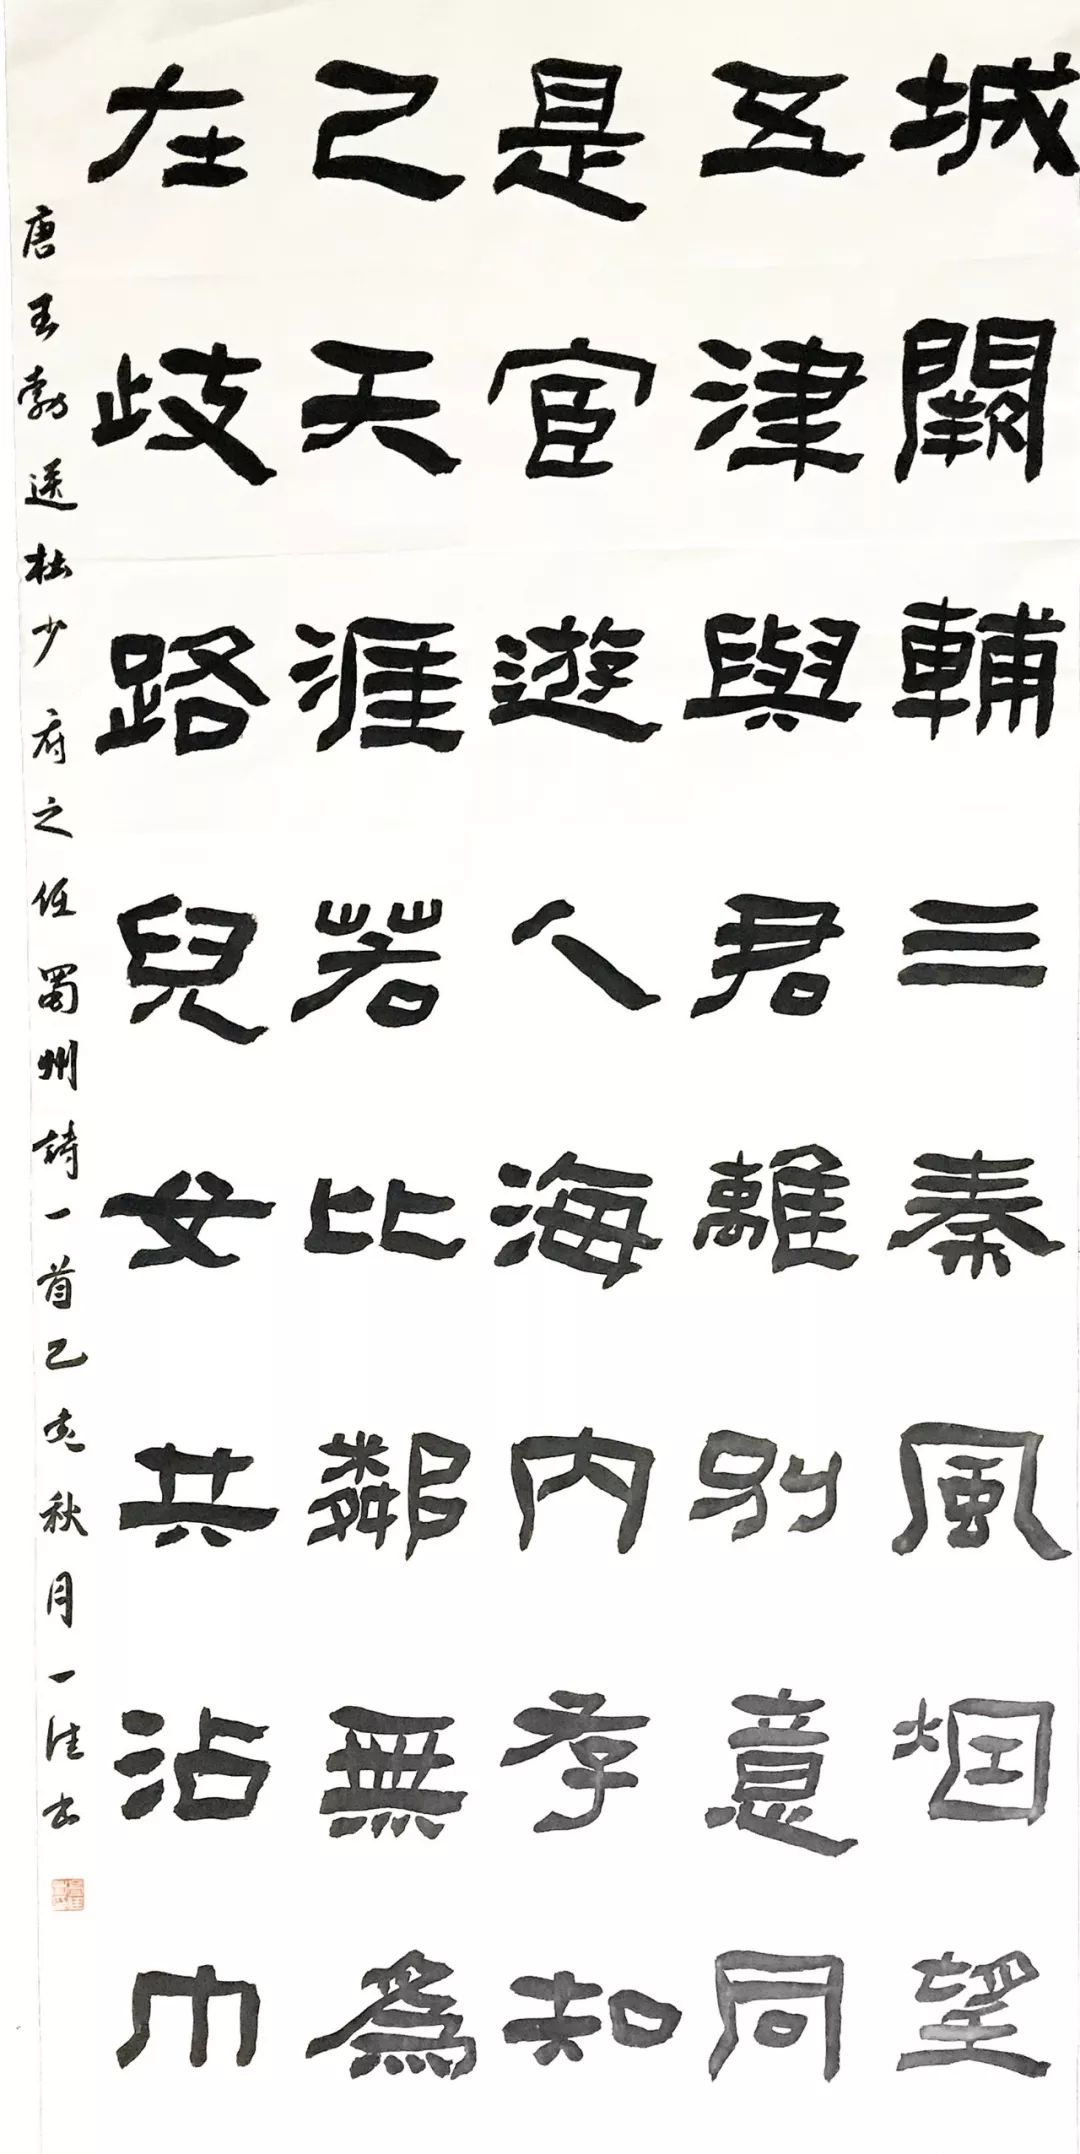 城闕輔三秦風烟望
五津與君離別意同
是宦遊人海内存知
己天涯若比鄰無為
在歧路兒女共沾巾
唐王勃送杜少府之任蜀州詩一首己亥秋月一佳书